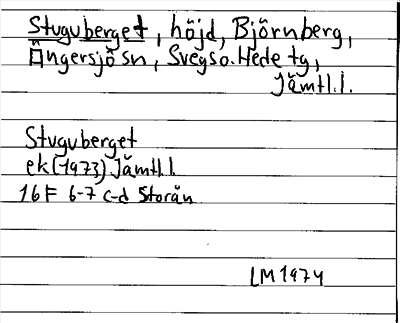 Stuguberget, höjd, Björnberg,
Ängersjö sn, Svegs o. Hede tg,
Jämtl.l.
Stuguberget
ek (1973) Jämtl.l.
16F 6-7 c-d Storån
LM 1974